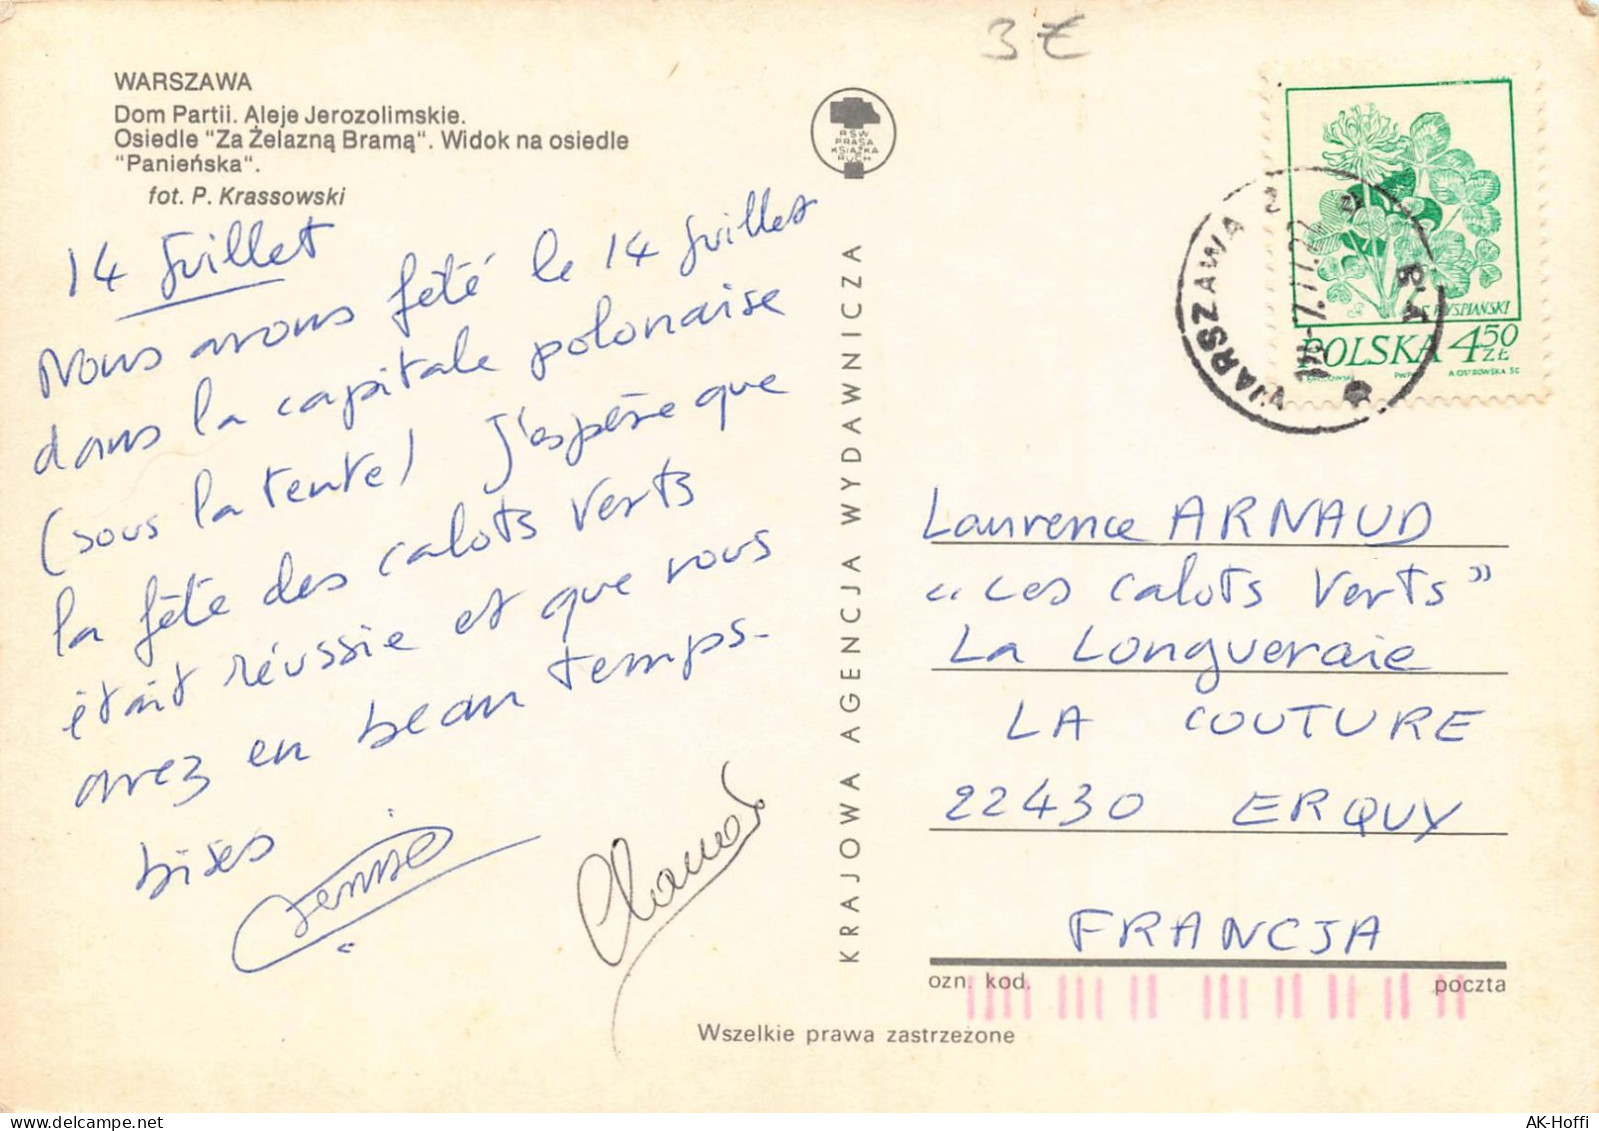 3 €
WARSZAWA
Dom Partii. Aleje Jerozolimskie.
Osiedle "Za Żelazną Bramą". Widok na osiedle
"Panieńska".
fot. P. Krassowski
14 Juillet
Nous avons fêté le 14 Juillet
dans la capitale polonaise
(sous la tente) J'espère que
la fête des calots verts
était réussie et que vous
avez en beau temps-
bises
Denise
RSW
PRASA
KSIĄŻKA
RUCH
KRAJOWA AGENCJA WYDAWNICZA
WARSZAWA 2
POLSKA 4,50 ZŁ
WYSPIAŃSKI
PWPW
A OSTROWSKA SC
Laurence ARNAUD
"Les calots verts"
La Longueraie
LA COUTURE
22430 ERQUY
FRANCJA
ozn. kod.
poczta
Wszelkie prawa zastrzeżone
AK-Hoffi